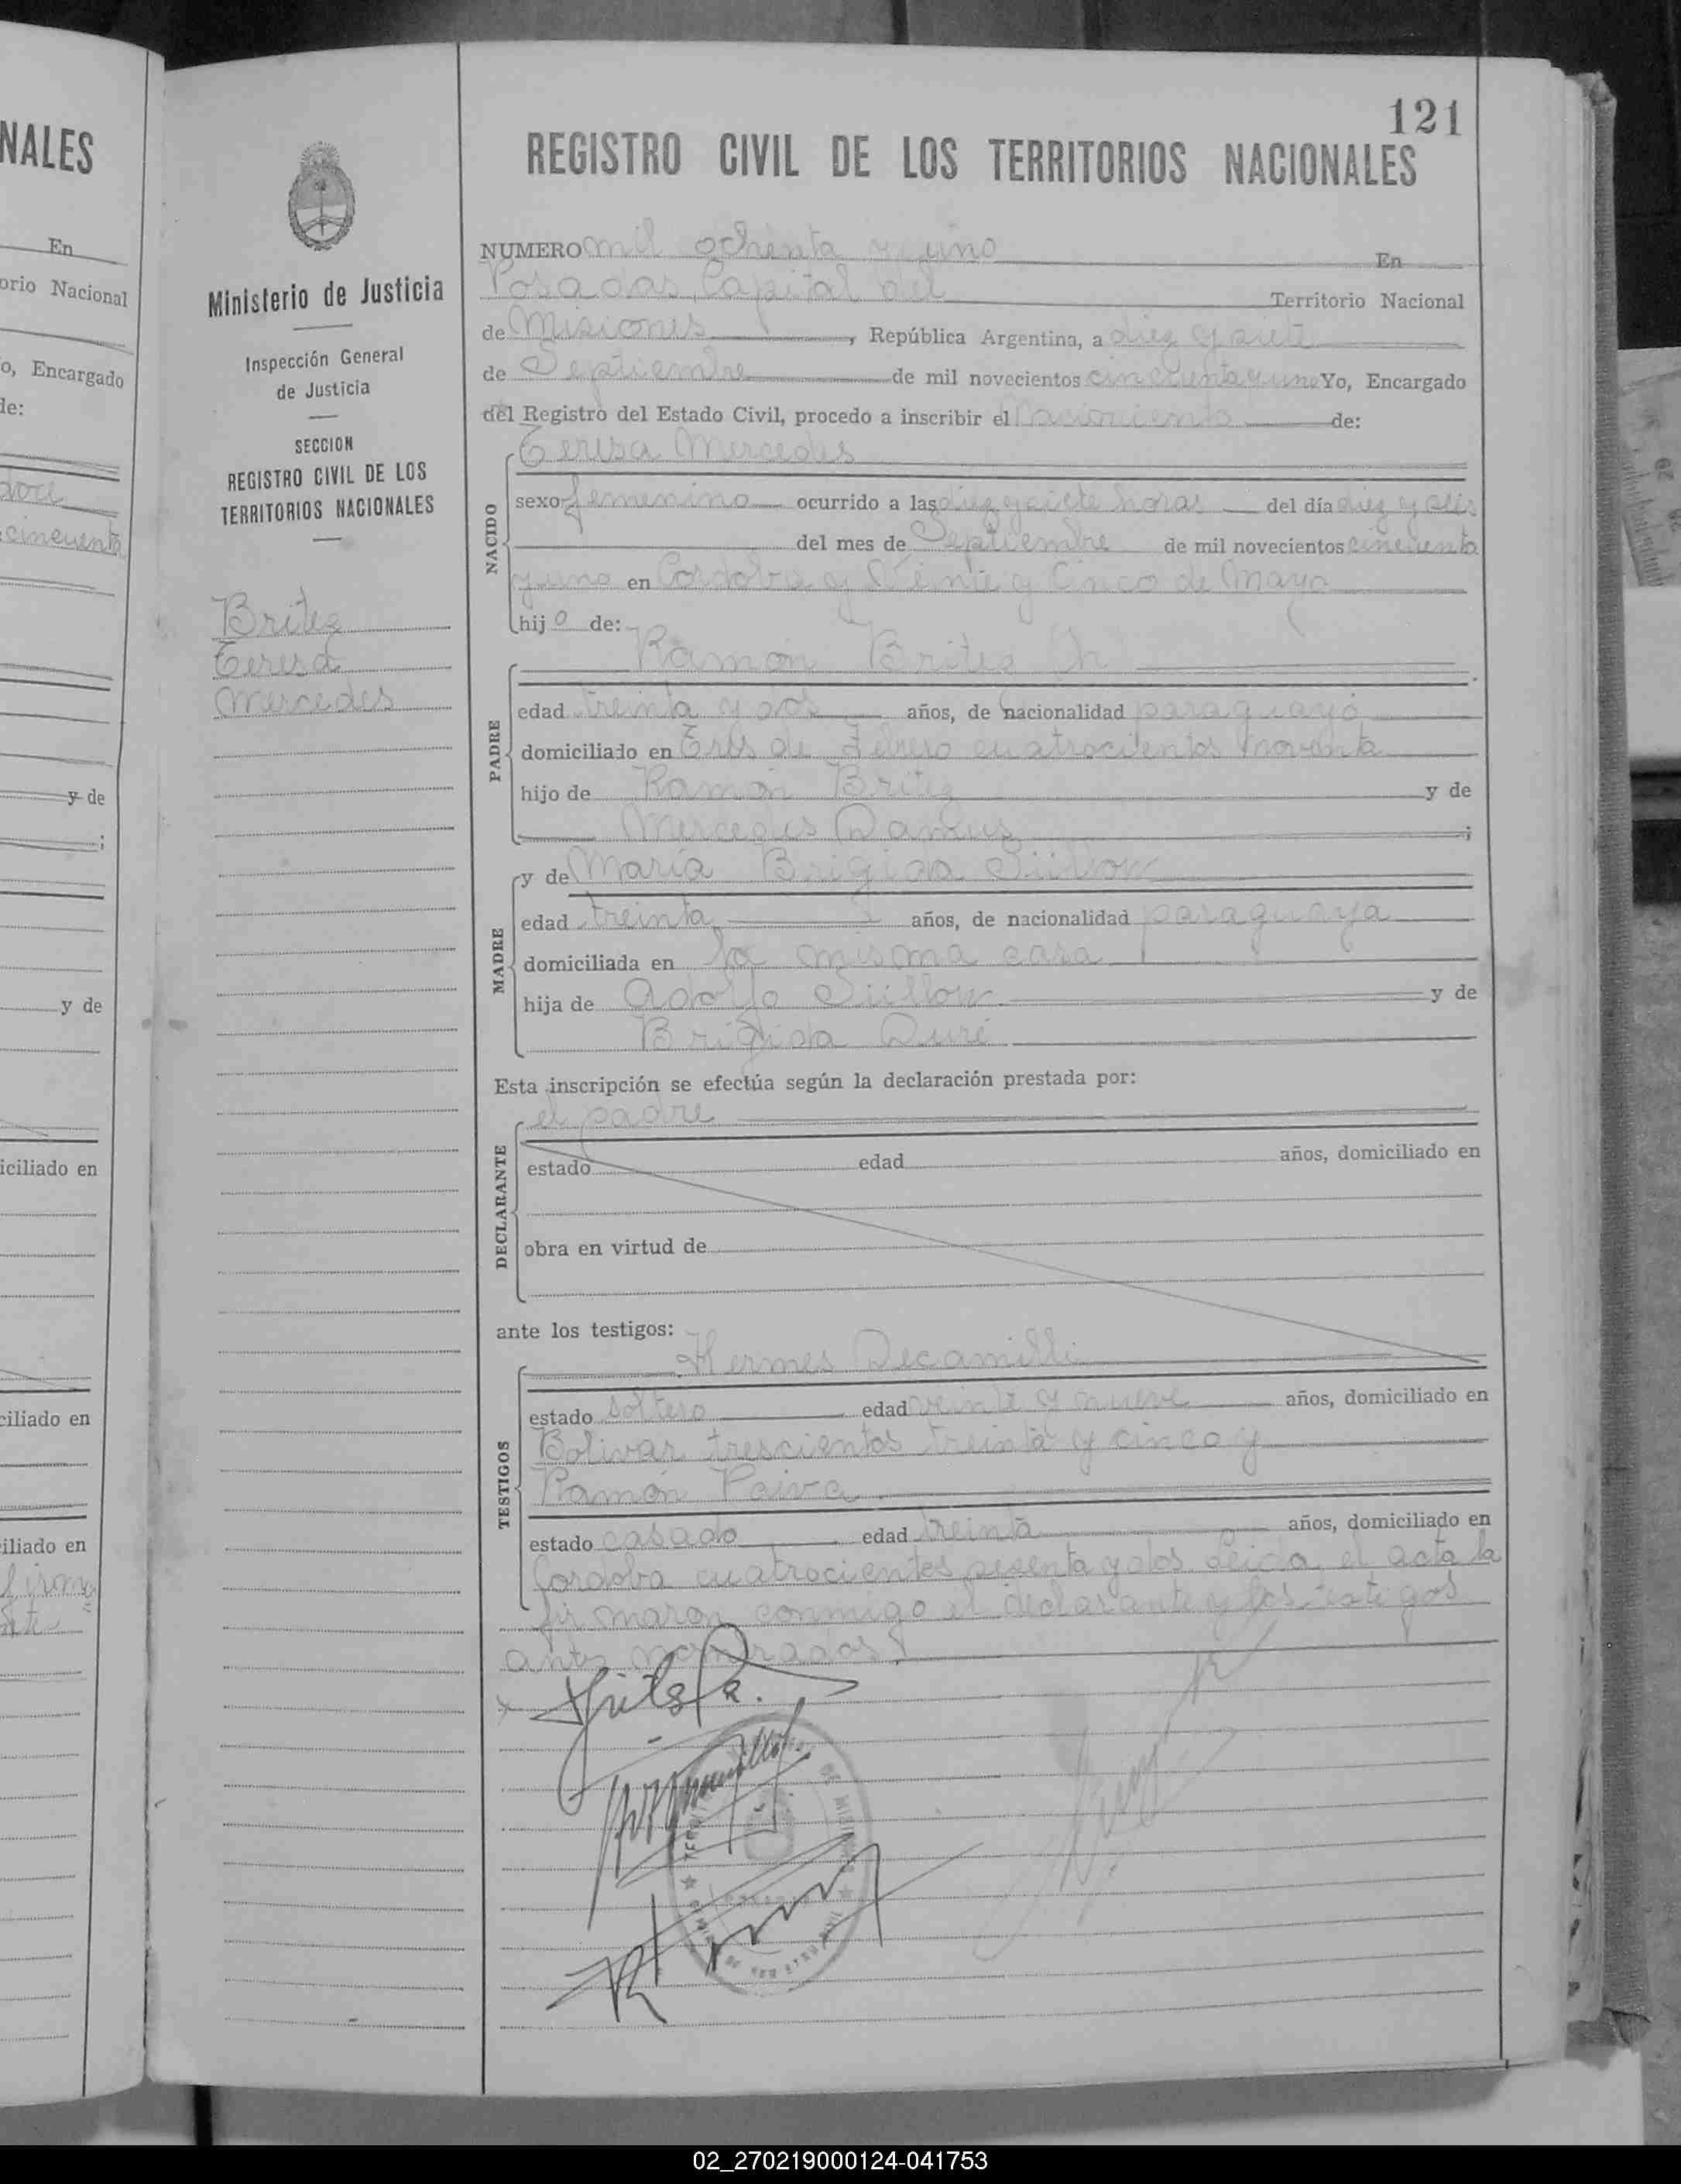 NALES
En
orio Nacional
o, Encargado
de:
doce
cincuenta
y de
;
y de
iciliado en
ciliado en
iliado en
firma
Ministerio de Justicia
Inspección General
de Justicia
SECCION
REGISTRO CIVIL DE LOS
TERRITORIOS NACIONALES
Britez
Teresa
Mercedes
121
REGISTRO CIVIL DE LOS TERRITORIOS NACIONALES
NUMERO mil ochenta y uno En
Posadas, Capital del Territorio Nacional
de Misiones, República Argentina, a diez y siete
de Septiembre de mil novecientos cincuenta y uno Yo, Encargado
del Registro del Estado Civil, procedo a inscribir el Nacimiento de:
NACIDO
Teresa Mercedes
sexo femenino ocurrido a las diez y siete horas del día diez y seis
del mes de Septiembre de mil novecientos cincuenta
y uno en Cordoba y Veinte y Cinco de Mayo
hijo de:
PADRE
Ramón Britez h
edad treinta y dos años, de nacionalidad paraguayo
domiciliado en Tres de Febrero cuatrocientos noventa
hijo de Ramón Britez y de
Mercedes ;
MADRE
y de María Brigida
edad treinta años, de nacionalidad paraguaya
domiciliada en la misma casa
hija de Adolfo y de
Brigida Duré
Esta inscripción se efectúa según la declaración prestada por:
DECLARANTE
el padre
estado edad años, domiciliado en
obra en virtud de
ante los testigos:
TESTIGOS
Hermes Decamilli
estado soltero edad veinte y nueve años, domiciliado en
Bolivar trescientos treinta y cinco y
Ramón Paiva
estado casado edad treinta años, domiciliado en
Cordoba cuatrocientos sesenta y dos. Leida el acta la
firmaron conmigo el declarante y los testigos
antes nombrados.
02_270219000124-041753